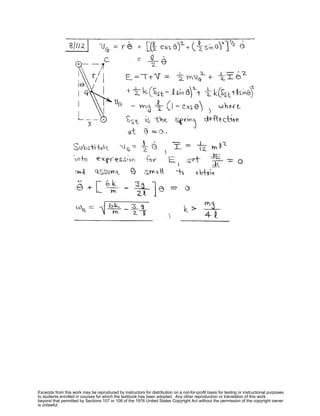 8/112 v_G = r θ̇ = [(ℓ/2 cos θ)² + (ℓ/2 sin θ)²]^½ θ̇
= ℓ/2 θ̇
C
r
θ
G
v_G
x
E = T + V = ½ m v_G² + ½ I θ̇²
+ ½ k (δ_st - ℓ sin θ)² + ½ k (δ_st + ℓ sin θ)²
- mg ℓ/2 (1 - cos θ) , where
δ_st is the spring deflection
at θ = 0.
Substitute v_G = ℓ/2 θ̇ , I = 1/12 m ℓ²
into expression for E, set dE/dt = 0
and assume θ small to obtain
θ̈ + [6k/m - 3g/2ℓ] θ = 0
ω_n = √(6k/m - 3/2 g/ℓ) ; k > mg/4ℓ
Excerpts from this work may be reproduced by instructors for distribution on a not-for-profit basis for testing or instructional purposes
to students enrolled in courses for which the textbook has been adopted. Any other reproduction or translation of this work
beyond that permitted by Sections 107 or 108 of the 1976 United States Copyright Act without the permission of the copyright owner
is unlawful.